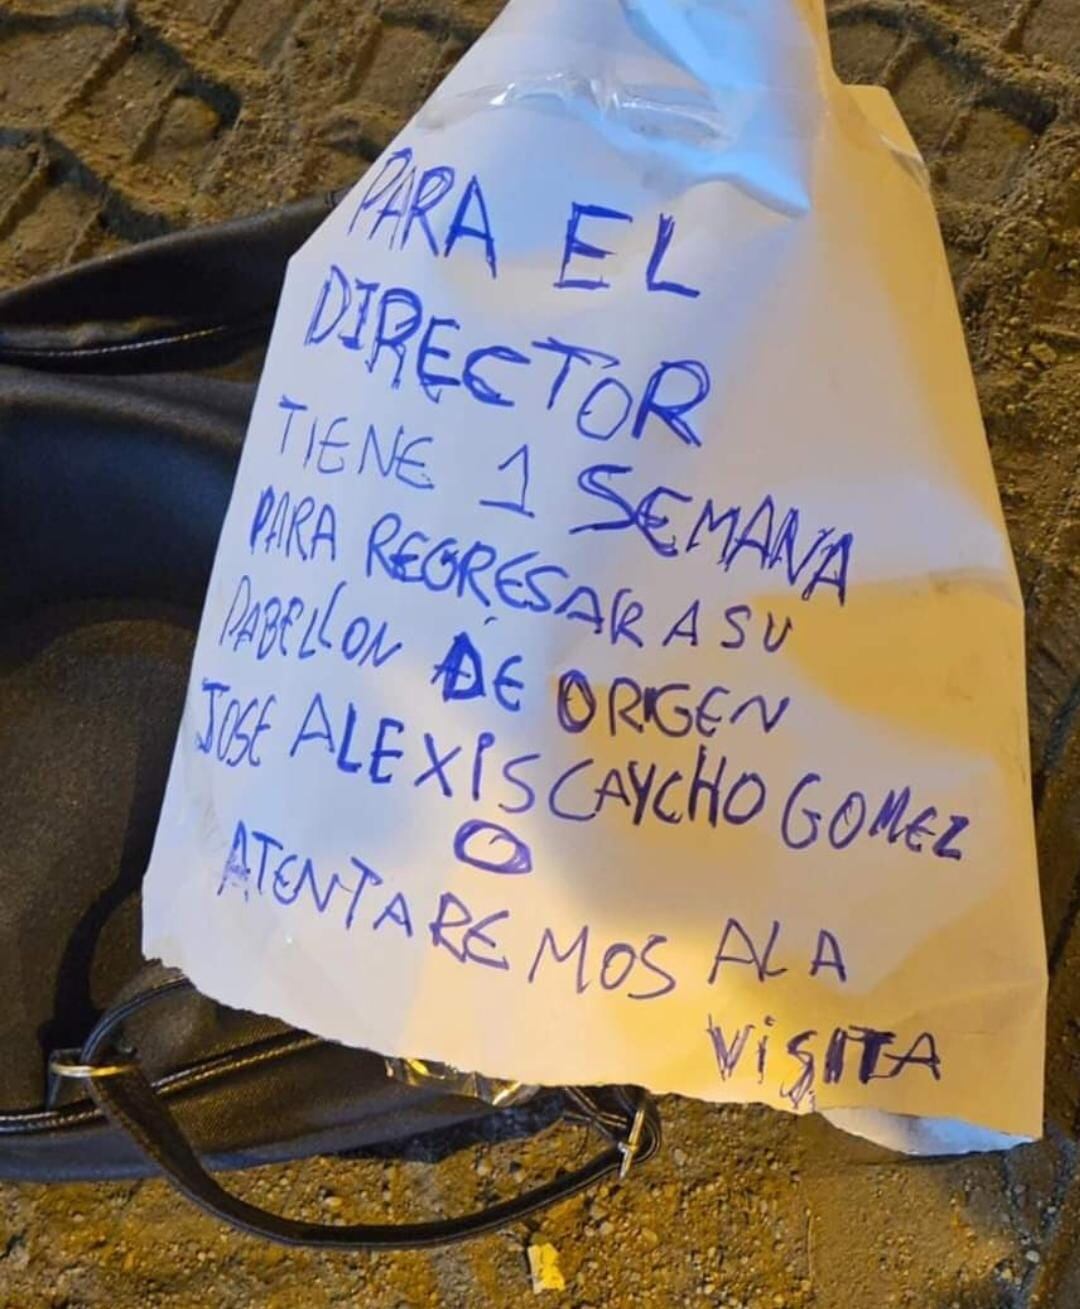 PARA EL
DIRECTOR
TIENE 1 SEMANA
PARA REGRESAR A SU
PABELLON DE ORIGEN
JOSE ALEXIS CAYCHO GOMEZ
O
ATENTAREMOS ALA
VISITA